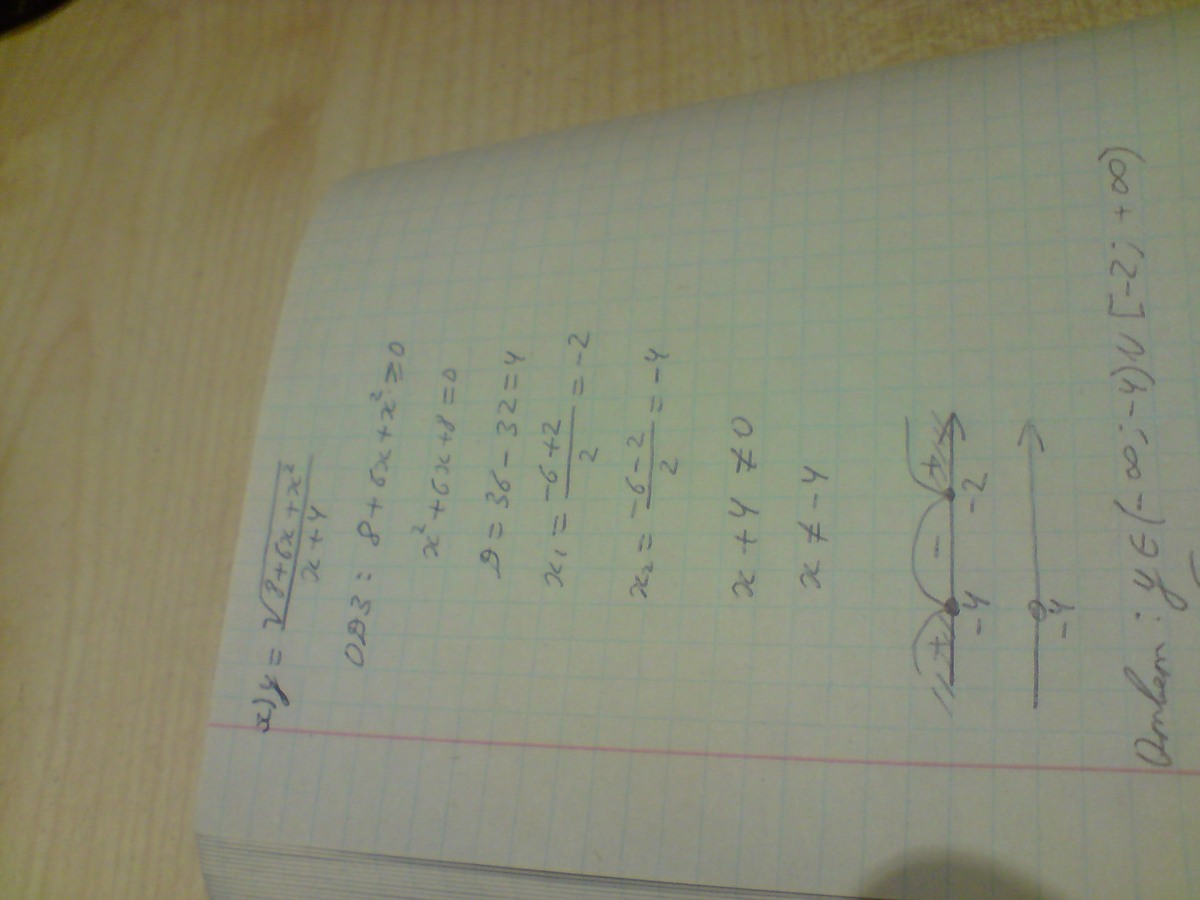 а) y = √(8+6x+x²) / (x+4)
ОДЗ: 8+6x+x² ≥ 0
x²+6x+8=0
D = 36-32=4
x₁ = (-6+2)/2 = -2
x₂ = (-6-2)/2 = -4
x + 4 ≠ 0
x ≠ -4
+ - +
-4 -2
-4
Ответ: y ∈ (-∞; -4) ∪ [-2; +∞)